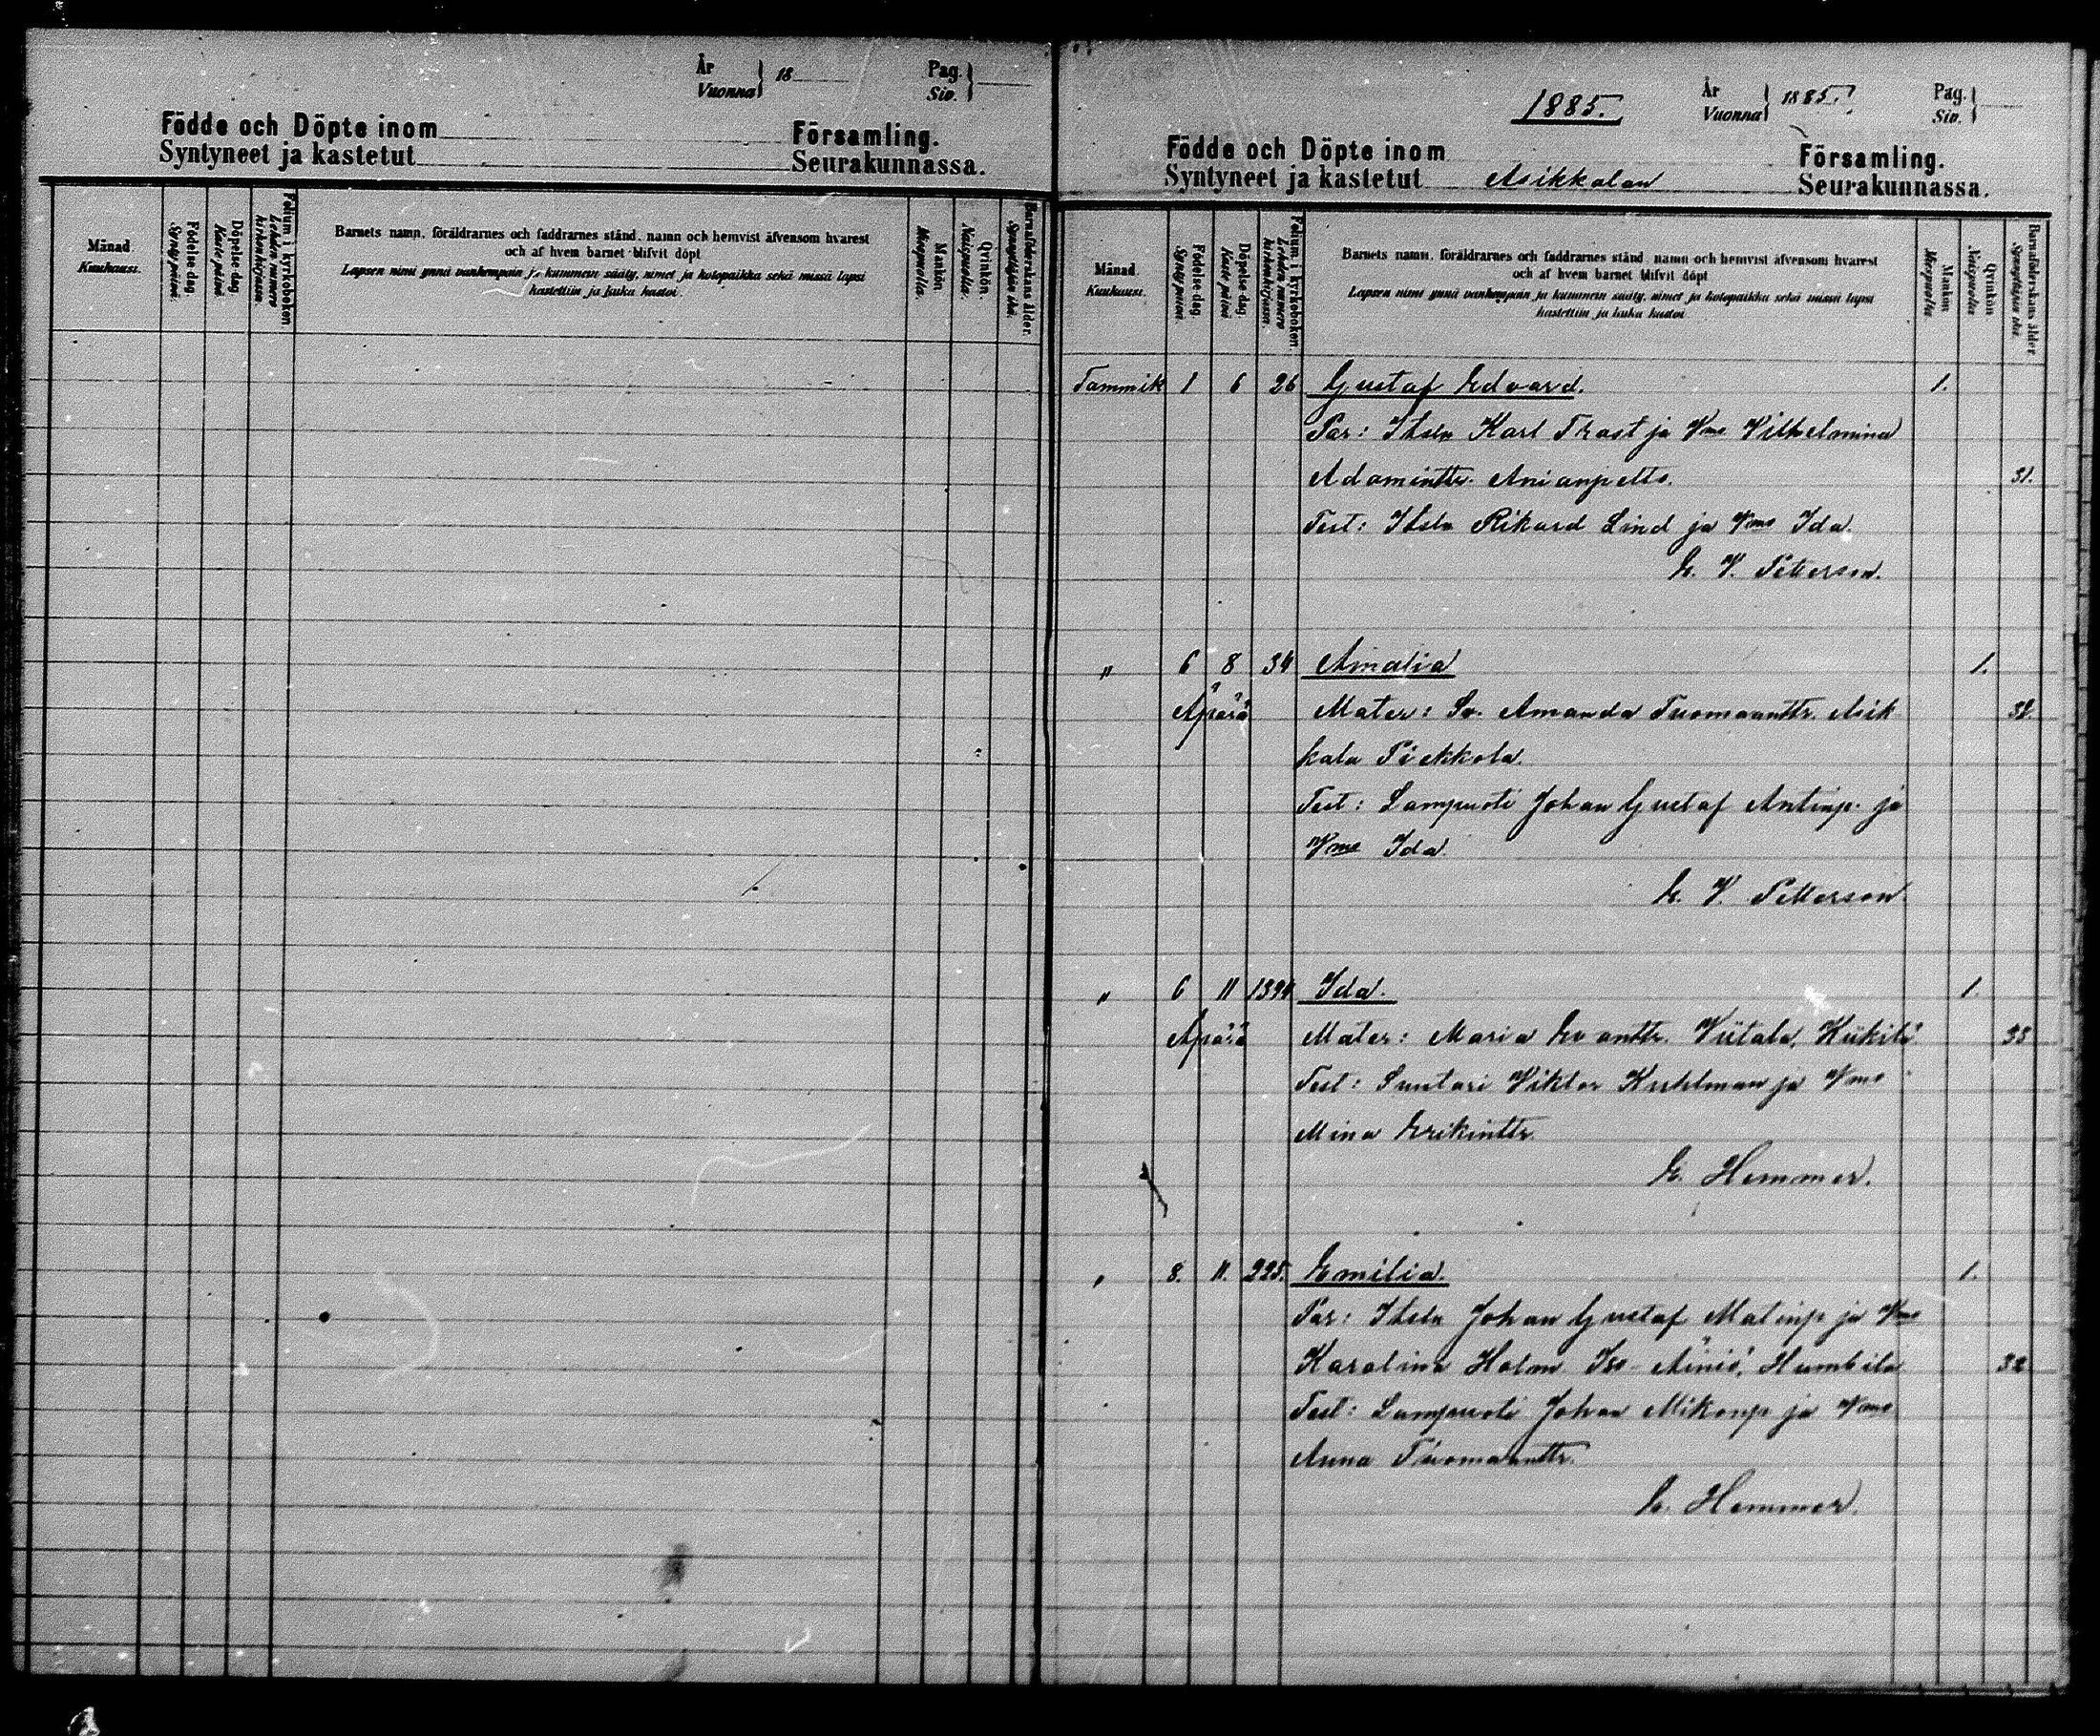 År
Vuonna } 18
Pag.
Siv. }
Födde och Döpte inom Församling.
Syntyneet ja kastetut Seurakunnassa.
Månad
Kuukausi.
Födelse dag.
Synty päivä.
Döpelse dag.
Kaste päivä.
Folium i kyrkoboken.
Lehden numero kirkonkirjassa
Barnets namn, föräldrarnes och faddrarnes stånd, namn och hemvist äfvensom hvarest
och af hvem barnet blifvit döpt
Lapsen nimi ynnä vanhempain ja kummein sääty, nimet ja kotopaikka sekä missä lapsi
kastettiin ja kuka kastoi.
Mankön.
Miespuolia.
Qvinkön.
Naispuolia.
Barnaföderskans ålder.
Synnyttäjän ikä.
1885.
År
Vuonna } 1885.
Pag.
Siv. }
Födde och Döpte inom Församling.
Syntyneet ja kastetut Asikkalan Seurakunnassa.
Månad
Kuukausi.
Födelse dag.
Synty päivä.
Döpelse dag.
Kaste päivä
Folium i kyrkoboken.
Lehden numero kirkonkirjassa.
Barnets namn, föräldrarnes och faddrarnes stånd, namn och hemvist äfvensom hvarest
och af hvem barnet blifvit döpt
Lapsen nimi ynnä vanhempain ja kummein sääty, nimet ja kotopaikka sekä missä lapsi
kastettiin ja kuka kastoi
Mankön
Miespuolia
Qvinkön
Naispuolia
Barnaföderskans ålder
Synnyttäjän ikä
Tammik 1 6 26 Gustaf Edvard. 1.
Par: Itsln Karl Trast ja Vmo Vilhelmina
Adamintr. Anianpelto. 31.
Test: Itsln Rikard Lind ja Vmo Ida.
E. V. Petterson.
" 6 8 34 Amalia 1.
Äpärä Mater: Amanda Tuomaanttr. Asik
kala Pièkkola.
Test: Lampuoti Johan Gustaf Antinp. ja
Vmo Ida.
E. V. Petterson.
" 6 11 1394 Ida. 1.
Äpärä Mater: Maria Evanttr. Viitala, 35
Test: Suutari Viktor Kuhlman ja Vmo
Mina Erikinttr.
E. Hemmer.
" 8. 11. 225. Emilia. 1.
Par: Itsln Johan Gustaf Matinp ja Vmo
Karolina Holm Iso-Äiniö, 32
Test: Lampuoti Johan Mikonp ja Vmo
Anna Tuomaanttr.
E. Hemmer.